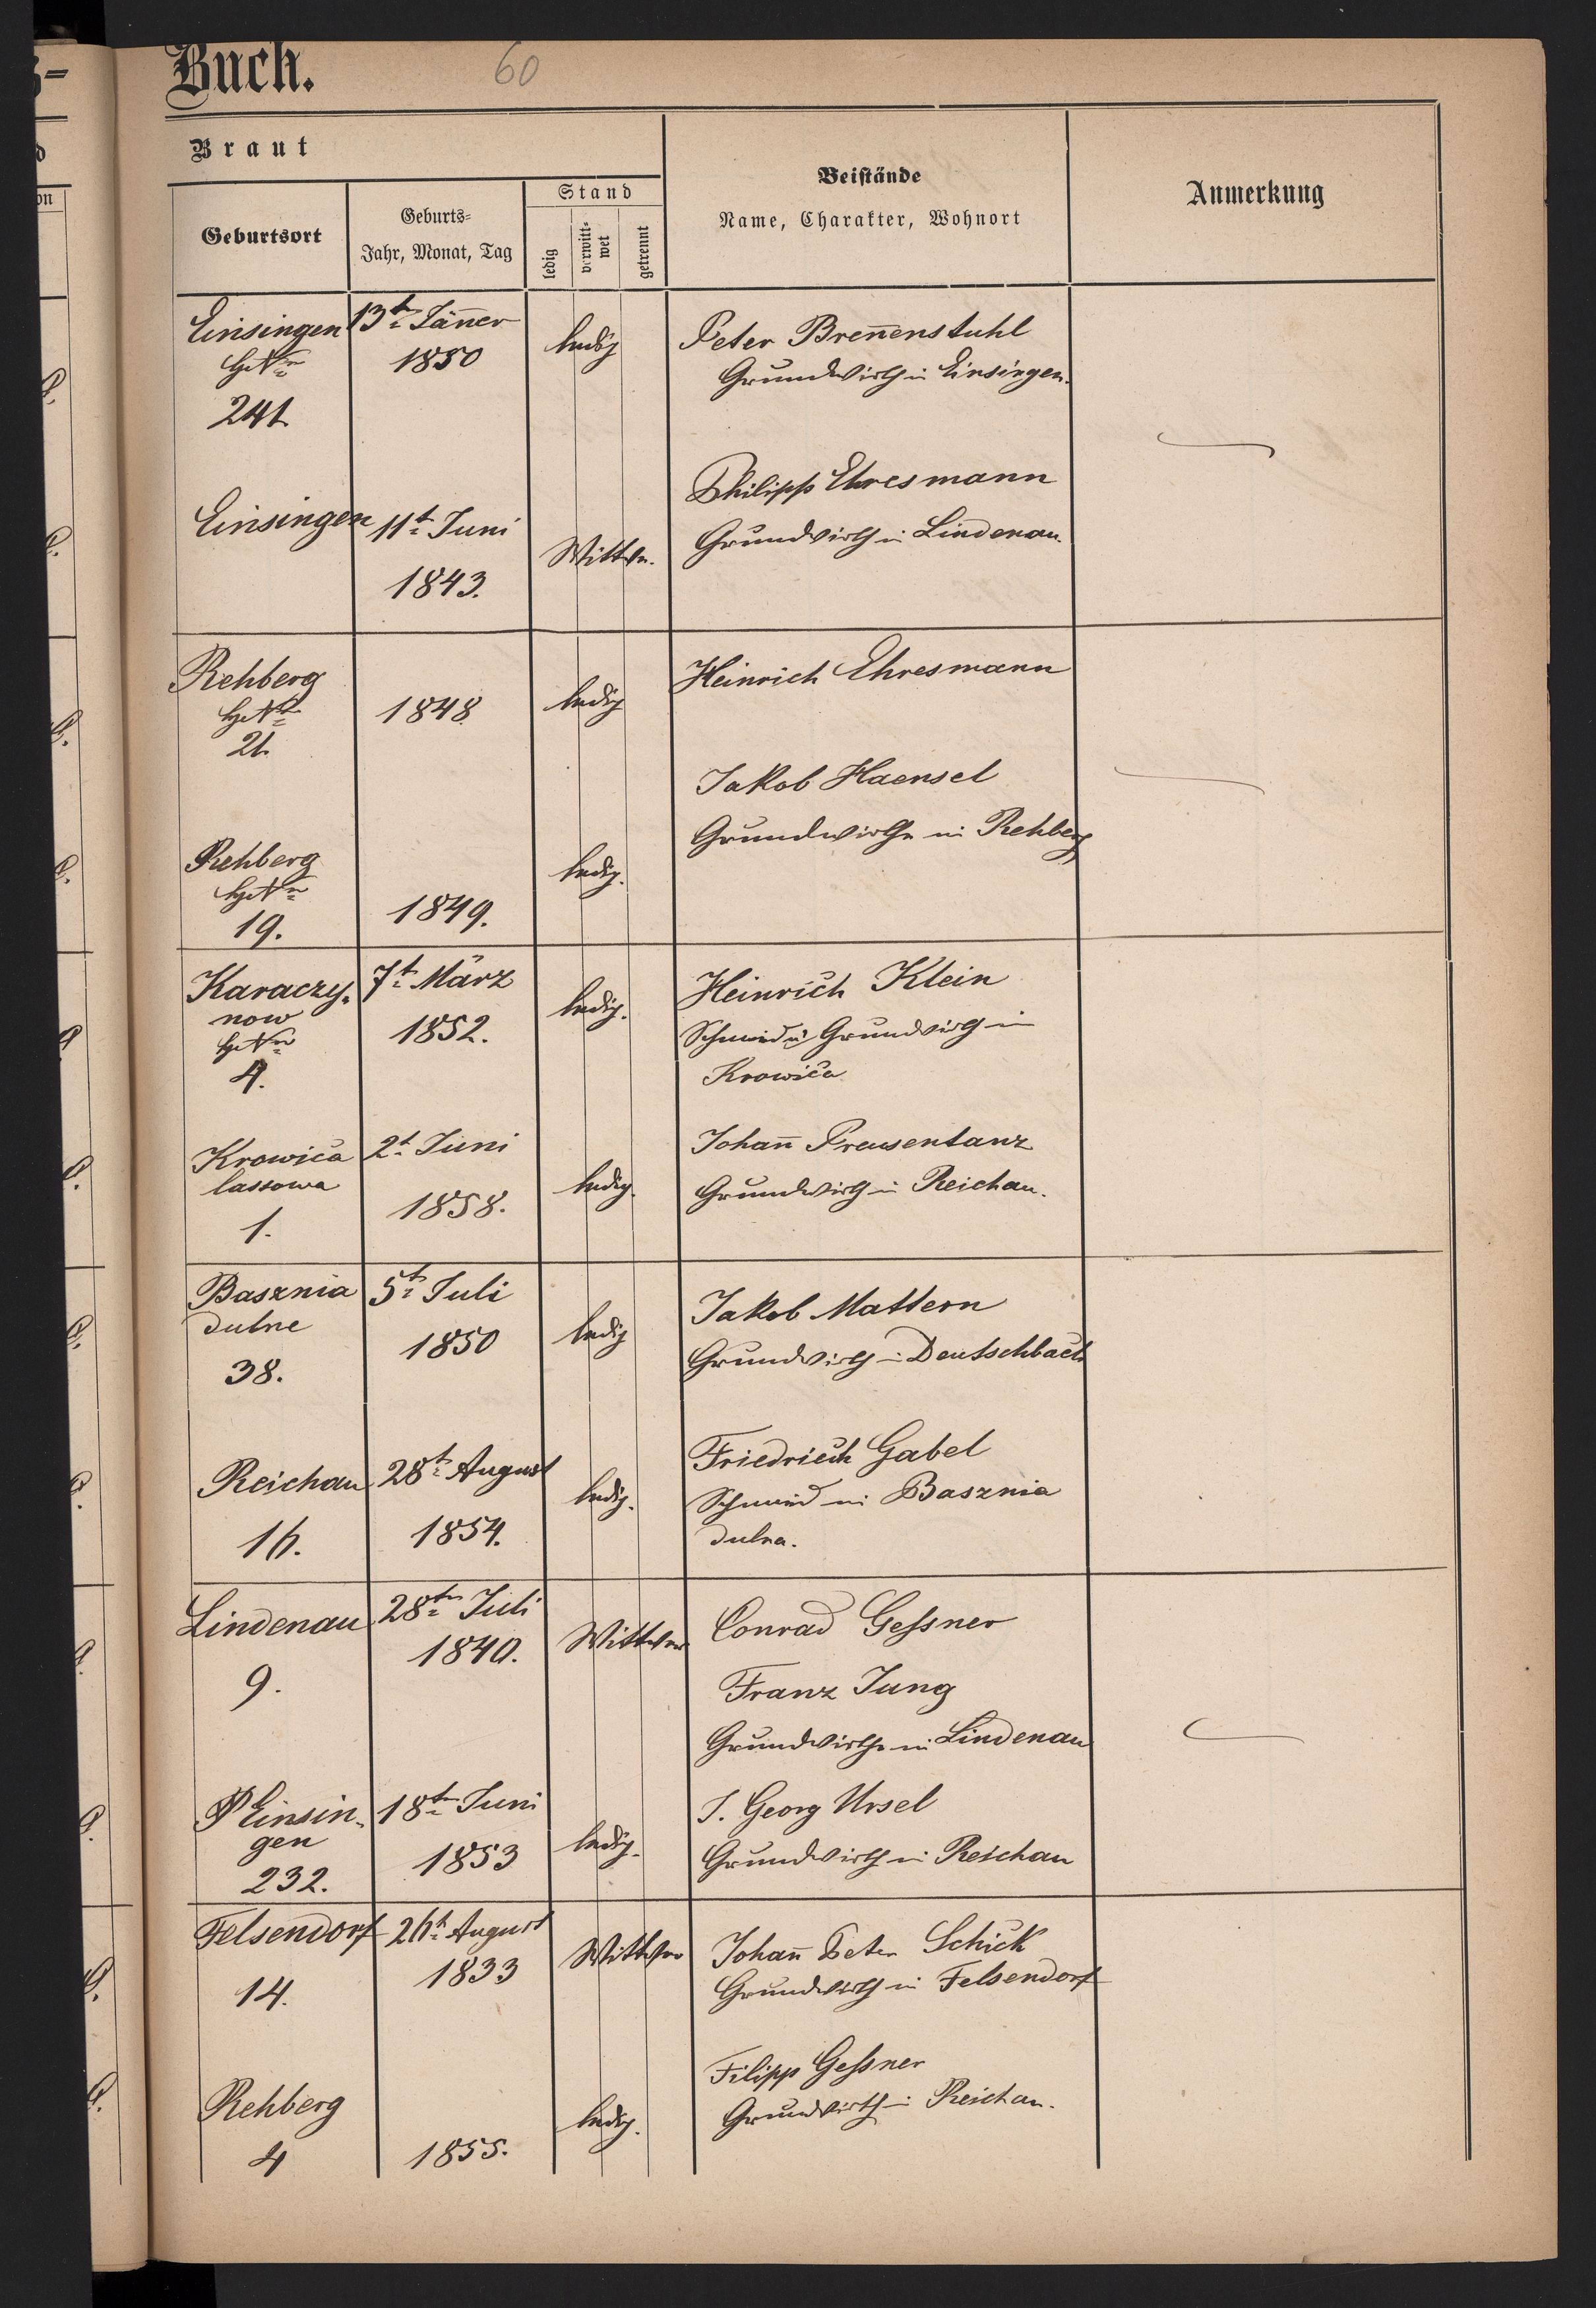 Buch.
60
Braut
Beistände
Name, Charakter, Wohnort
Anmerkung
Geburtsort
Geburts-
Jahr, Monat, Tag
Stand
ledig
verwitt-
wet
getrennt
Einsingen 13t Jän̄er ledig Peter Bren̄enstuhl
HsNr 1850 Grundwirth in Einsingen.
241.
Philipp Ehresmann
Einsingen 11t Juni Wittwe. Grundwirth in Lindenau.
1843.
Rehberg ledig Heinrich Ehresmann
HsNr 1848
21.
Jakob Haensel
Grundwirthe in Rehberg
Rehberg ledig.
HsNr
19. 1849.
Karaczy- 7t März ledig. Heinrich Klein
now 1852. Schmied u Grundwirth in
HsNr Krowica
4.
Krowica 2t Juni Johan̄ Preusentanz
lassowa ledig. Grundwirth in Reichau.
1. 1858.
Basznia 5t Juli ledig Jakob Mattern
dulne 1850 Grundwirth in Deutschbach
38.
Friedrich Gabel
Reichau 28t August ledig. Schmied in Basznia
16. 1854. dulna.
Lindenau 28ten Juli Wittwe Conrad Gessner
1840.
9. Franz Jung
Grundwirthe in Lindenau
Einsin- 18ten Juni J. Georg Ursel
gen 1853 ledig. Grundwirth in Reichau
232.
Felsendorf 26t August Wittwe Johan̄ Peter Schick
14. 1833 Grundwirth in Felsendorf
Filipp Gessner
Rehberg ledig. Grundwirth in Reichau.
4 1855.